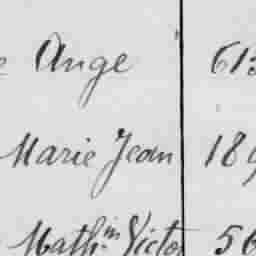 Ange 613
Marie Jean 189
Math.in Victor 56